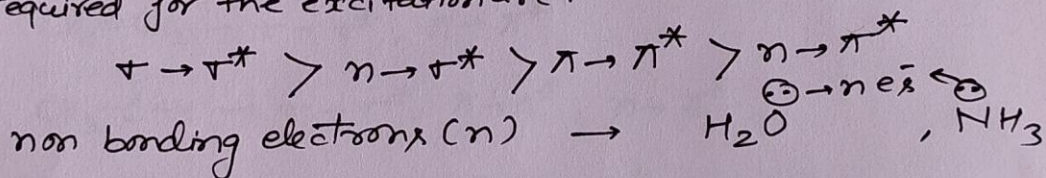 equired for the excitation are
σ → σ* > n → σ* > π → π* > n → π*
→ n es̄
non bonding electrons (n) → H₂O , NH₃